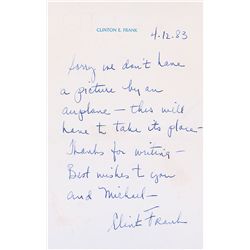 CLINTON E. FRANK
4.12.83
Sorry we don't have
a picture by an
airplane — this will
have to take its place —
Thanks for writing —
Best wishes to you
and Michael —
Clint Frank